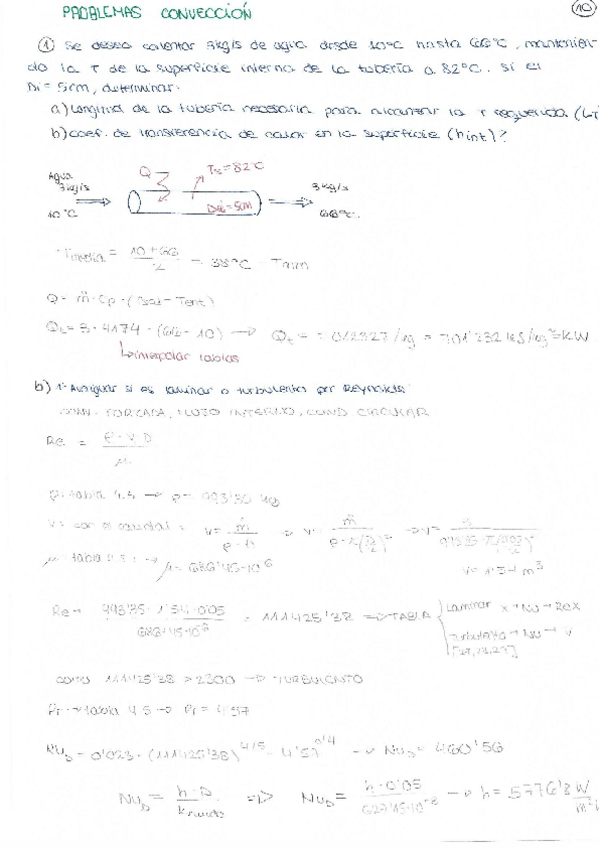 PROBLEMAS CONVECCIÓN
10
① Se desea calentar 3kg/s de agua desde 10°C hasta 66°C, mantenien-
do la T de la superficie interna de la tubería a 82°C. Si el
Di = 5cm, determinar:
a) Longitud de la tubería necesaria para alcanzar la T requerida
b) Coef. de transferencia de calor en la superficie (hint)?
Agua
3kg/s
10°C
Q
Ts = 82°C
Di = 5cm
3kg/s
66°C.
Tmedia = 10 + 66 / 2 = 38°C
Q = ṁ · Cp · (Tsal - Tent)
Qt = 3 · 4174 · (66 - 10) → Qt = = 701'232 kJ/kg = kW
↳ interpolar tablas
b) 1º Averiguar si es laminar o turbulento por Reynolds:
CONV. FORZADA, FLUJO INTERNO, COND CIRCULAR
Re = ρ · V · D / μ
ρ → tabla →
V = con el caudal = V = ṁ / ρ · A ⇒ V =
tabla → μ = 686'45·10⁻⁶
V = 1'54 m
Re = · 1'54 · 0'05 / 686'45·10⁻⁶ = 111425'38 ⇒ TABLA
Laminar
Turbulento → Nu →
como 111425'38 > 2300 → TURBULENTO
Pr → tabla 4.5 → Pr = 4'57
NuD = 0'023 · (111425'38)^4/5 · 4'57^0'4 → NuD = 460'56
NuD = h · D / k ⇒ NuD = h · 0'05 / → h = 5776'3 W